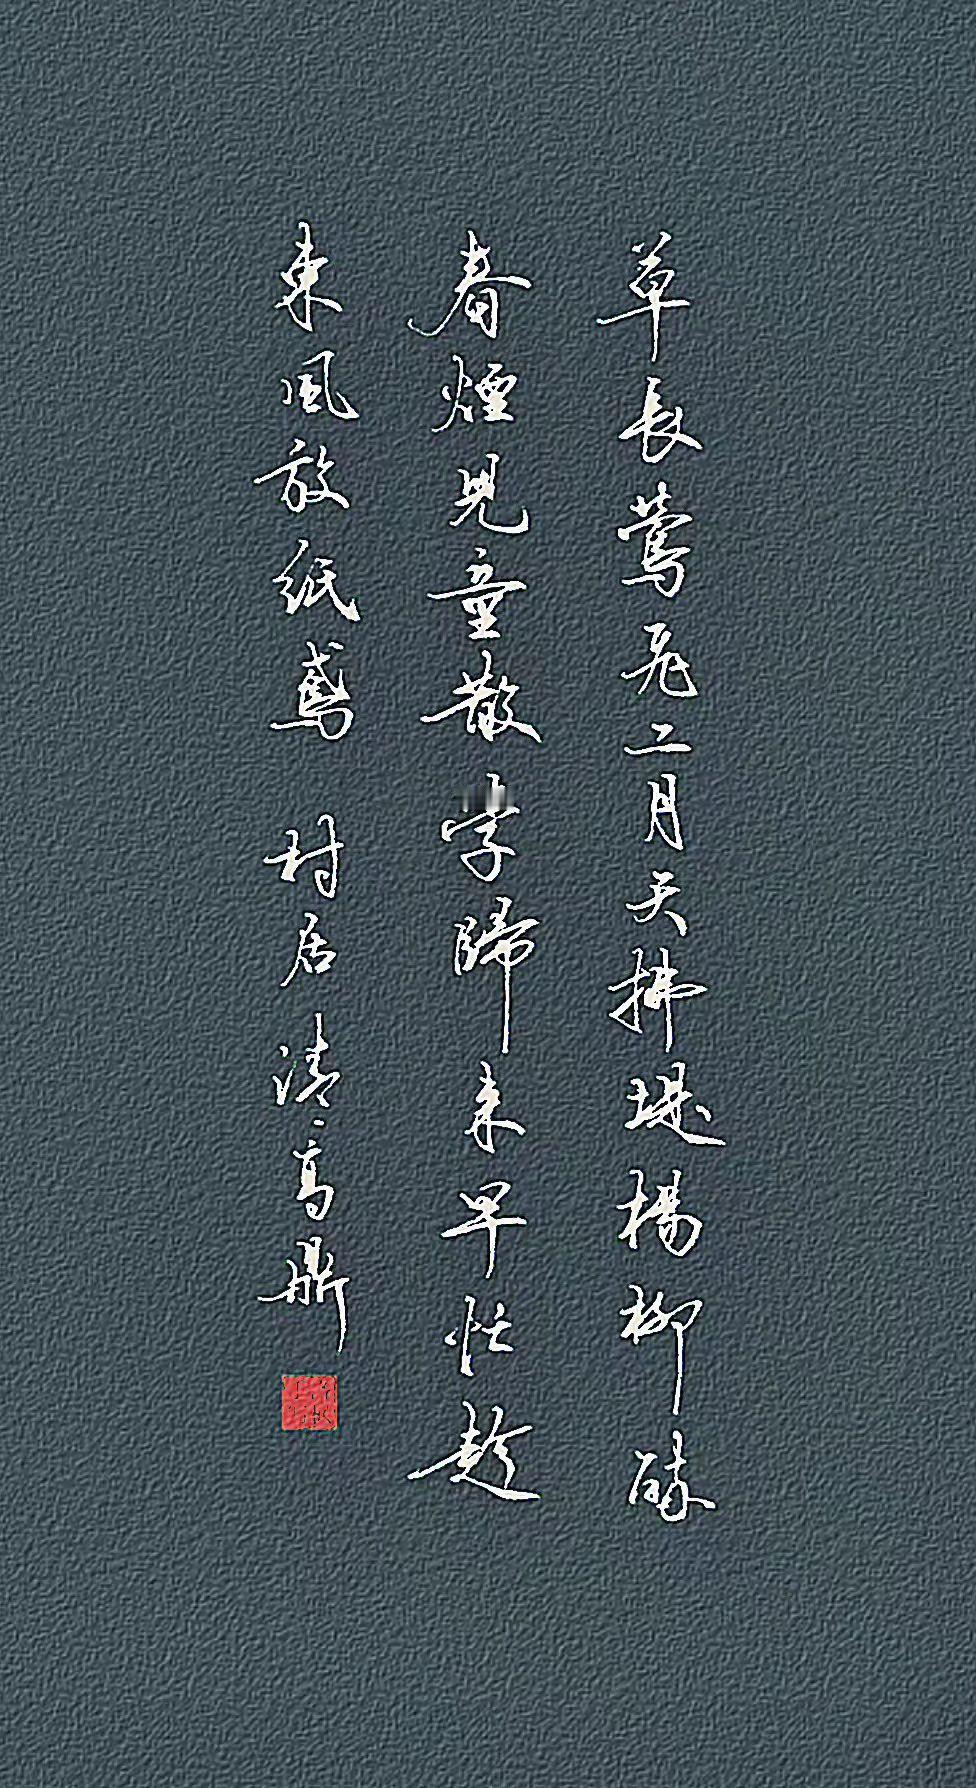 草長鶯飛二月天拂堤楊柳醉
春煙兒童散學歸來早忙趁
東風放紙鳶 村居 清 高鼎